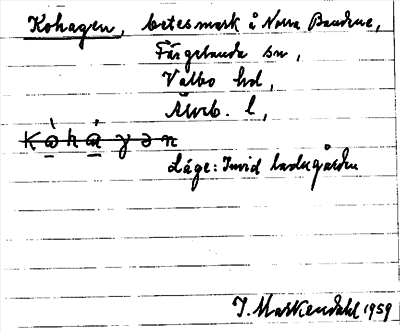 Kohagen, betesmark å Norra Bandene,
Färgelanda sn,
Valbo hd,
Älvsb. l,
Läge: Invid ladugården
J. Markendahl 1959